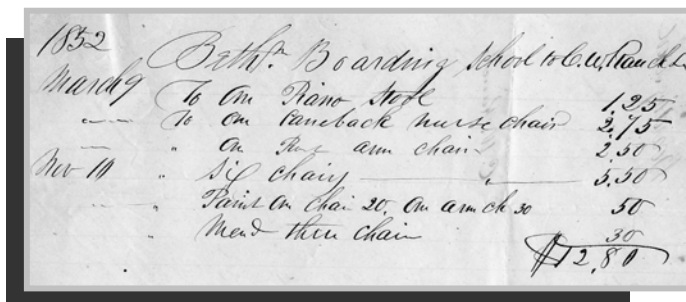 1852 Bethm. Boarding School to C. W. Rauch Dr
March 9 To one Piano Stool 1.25
" To one Caneback nurse chair 2.75
" " one arm chair 2.50
Nov 10 " Six chairs " 5.50
" Paint one chair 20, one arm ch 30 50
" Mend three chair 30
$12,80